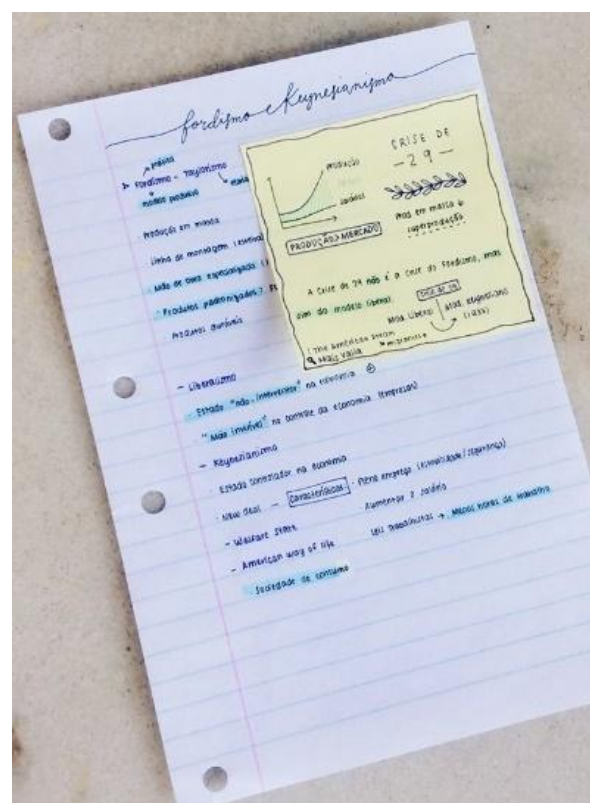 fordismo e Keynesianismo
prática
Fordismo - Taylorismo
modelo produtivo
· Produção em massa
· Linha de montagem
· Mão de obra especializada
· Produtos padronizados
· Produtos duráveis
CRISE DE
- 29 -
PRODUÇÃO
Salários
PRODUÇÃO > MERCADO
Prod em massa
superprodução
A Crise de 29 não é a crise do Fordismo, mas
sim do modelo liberal.
Crise de 29
Mod. Liberal
Mod. Keynesiano
(1933)
The American Dream
Mais Valia
- Liberalismo
· Estado "não-interventor" na economia
· "Mão Invisível" no controle da economia (empresas)
- Keynesianismo
· Estado controlador na economia
· New Deal - Características · Pleno emprego (estabilidade/segurança)
Aumentar o salário
Leis trabalhistas → Menos horas de trabalho
- Welfare State
- American way of life
· Sociedade de consumo